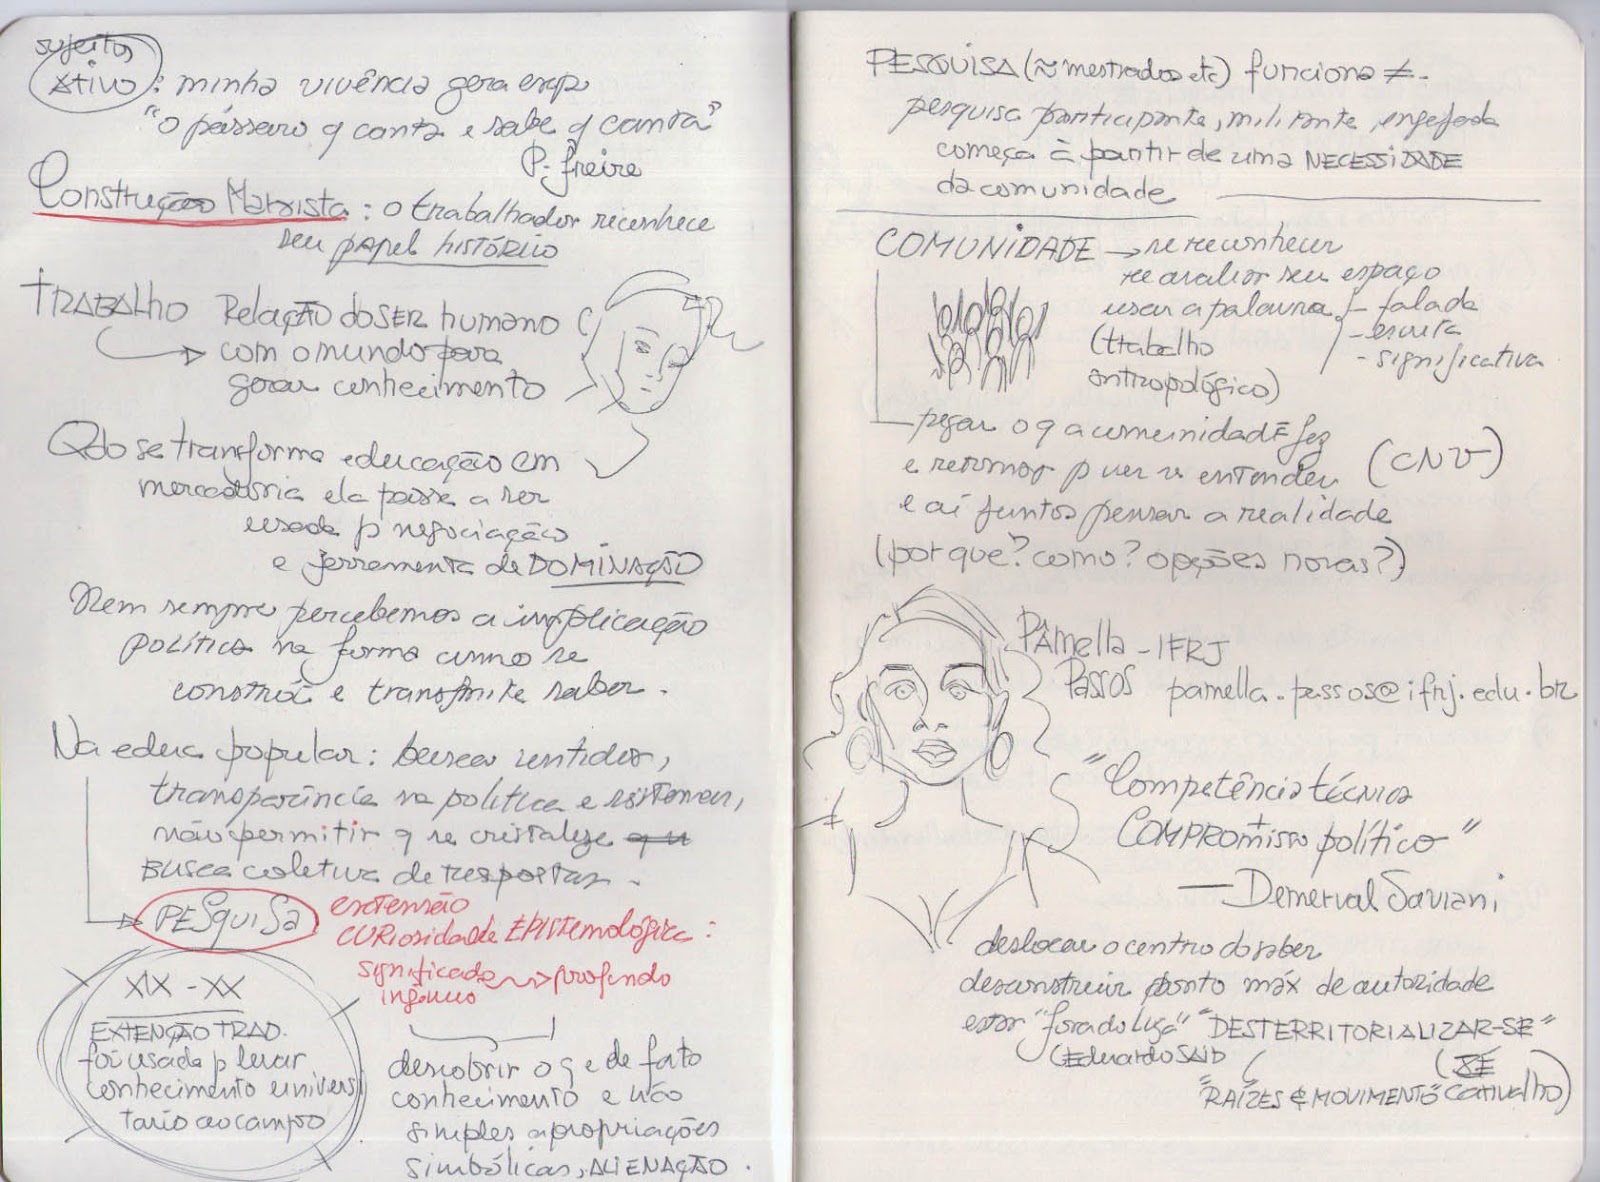 sujeitos
Ativo: minha vivência gera exp
"o pássaro q canta e sabe q canta"
P. Freire
Construção Marxista: o trabalhador reconhece
seu papel histórico
TRABALHO Relação do SER humano
com o mundo para
gerar conhecimento
Qdo se transforma educação em
mercadoria ela passa a ser
usada p negociação
e ferramenta de DOMINAÇÃO
Nem sempre percebemos a implicação
política na forma como se
constrói e transmite saber.
Na educa popular: buscar sentidos,
transparência na política e
não permitir q se cristalize
Busca coletiva de respostas.
PESquiSa
extensão
CURiosidade EPISTEMológica:
significado profundo
ingênuo
XIX - XX
EXTENÇÃO TRAD.
foi usada p levar
conhecimento universi
tario ao campo
descobrir o q é de fato
conhecimento e não
simples apropriações
simbólicas, ALIENAÇÃO.
PESQUISA (≈ mestrados etc) funciona ≠.
pesquisa participante, militante, engajada
começa à partir de uma NECESSIDADE
da comunidade
COMUNIDADE → se reconhecer
reavaliar seu espaço
usar a palavra - falada
- escrita
- significativa
(trabalho
antropológico)
pegar o q a comunidadE fez
e retornar p ver se entendeu (CNV)
e aí juntos pensar a realidade
(por que? como? opções novas?)
PÂmella - IFRJ
PASSOS pamella.passos@ifrj.edu.br
"Competência técnica
+
COMPROmisso político"
— Demerval Saviani
deslocar o centro do saber
desconstruir ponto máx de autoridade
estar "fora do lugar" "DESTERRITORIALIZAR-SE"
(Eduardo SAID
"RAÍZES & MOVIMENTO" Carvalho)